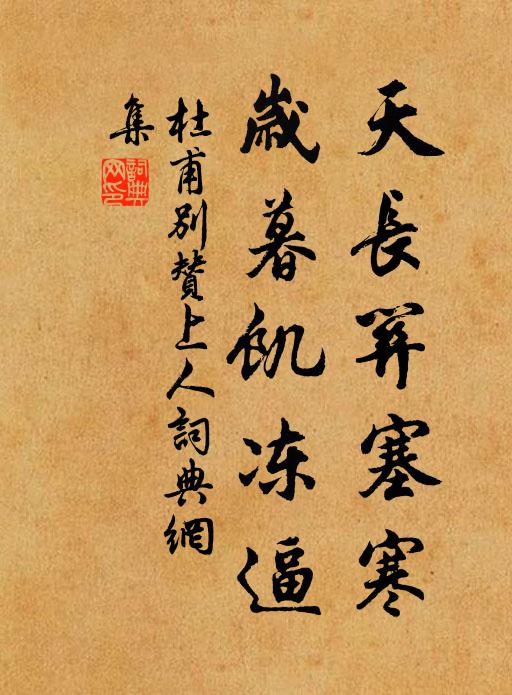 天長關塞寒
歲暮飢凍逼
杜甫別贊上人詞典網
集
詞典网印